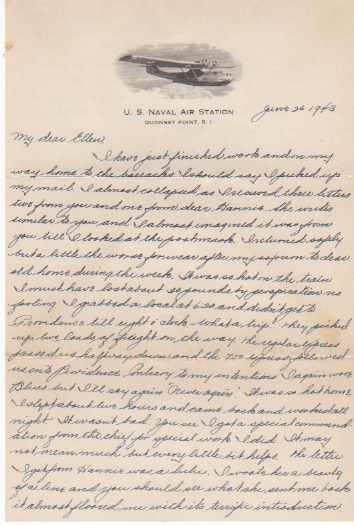 U. S. NAVAL AIR STATION
QUONSET POINT, R. I.
June 26 1943
My dear Ellen,
I have just finished work and on my
way home to the barracks I should say I picked up
my mail. I almost collapsed as I received three letters
two from you and one from dear Hannie. She writes
similar to you and I almost imagined it was from
you till I looked at the postmark. I returned safely
but a little the worse for wear after my sojourn to dear
old home during the week. It was so hot on the train
I must have lost about 20 pounds by perspiration no
fooling. I grabbed a local at 6:20 and didn't get to
Providence till eight o'clock what a trip. They picked
up two loads of freight on the way, the regular express
passed us halfway down and the 720 express followed
us into Providence. Contrary to my intentions I again wore
Blues but I'll say again "Never again". It was so hot home
I slept about two hours and came back and worked all
night. It wasn't bad. You see I got a special commend-
ation from the chief for special work I did. It may
not mean much but every little bit helps. The letter
I got from Hannie was a lulu. I wrote her a beauty
of a line and you should see what she sent me back
it almost floored me with its terrific introduction.